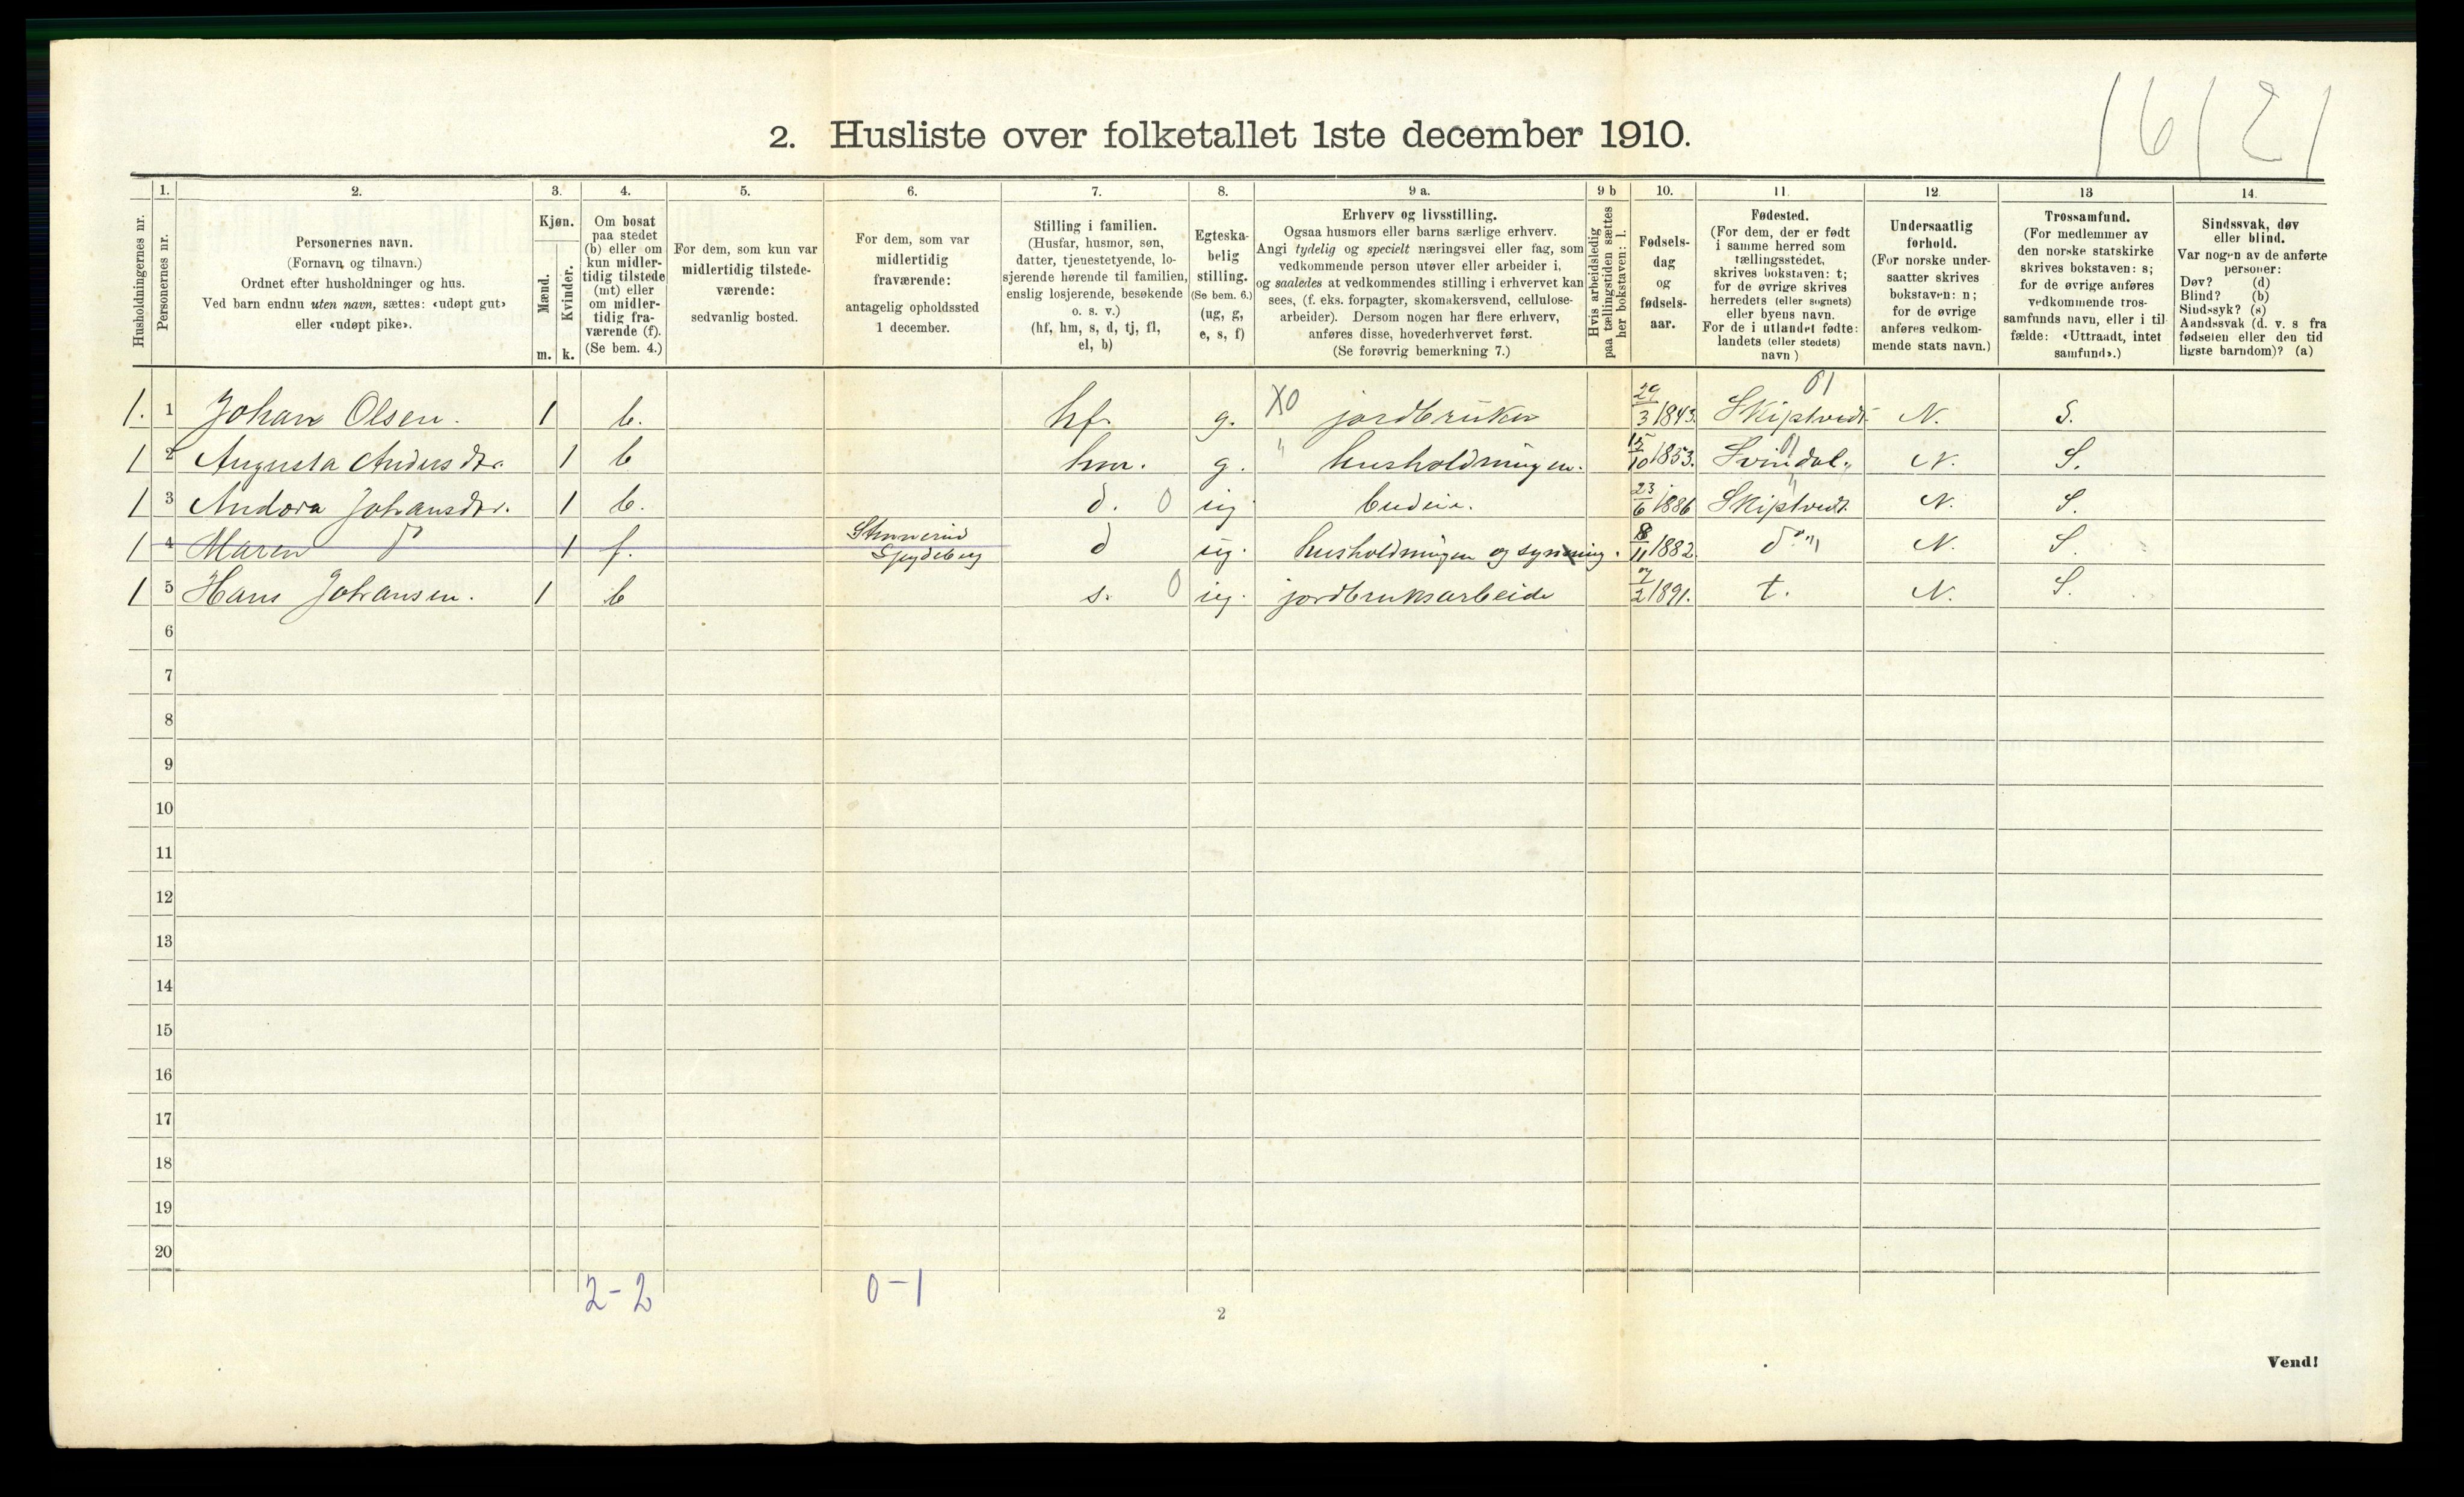 16 | 2 |
2. Husliste over folketallet 1ste december 1910.
1. 2. 3. 4. 5. 6. 7. 8. 9 a. 9 b 10. 11. 12. 13 14.
Husholdningernes nr.
Personernes nr.
Personernes navn.
(Fornavn og tilnavn.)
Ordnet efter husholdninger og hus.
Ved barn endnu uten navn, sættes: «udøpt gut»
eller «udøpt pike».
Kjøn.
Mænd.
Kvinder.
m. k.
Om bosat
paa stedet
(b) eller om
kun midler-
tidig tilstede
(mt) eller
om midler-
tidig fra-
værende (f).
(Se bem. 4.)
For dem, som kun var
midlertidig tilstede-
værende:
sedvanlig bosted.
For dem, som var
midlertidig
fraværende:
antagelig opholdssted
1 december.
Stilling i familien.
(Husfar, husmor, søn,
datter, tjenestetyende, lo-
sjerende hørende til familien,
enslig losjerende, besøkende
o. s. v.)
(hf, hm, s, d, tj, fl,
el, b)
Egteska-
belig
stilling.
(Se bem. 6.)
(ug, g,
e, s, f)
Erhverv og livsstilling.
Ogsaa husmors eller barns særlige erhverv.
Angi tydelig og specielt næringsvei eller fag, som
vedkommende person utøver eller arbeider i,
og saaledes at vedkommendes stilling i erhvervet kan
sees, (f. eks. forpagter, skomakersvend, cellulose-
arbeider). Dersom nogen har flere erhverv,
anføres disse, hovederhvervet først.
(Se forøvrig bemerkning 7.)
Hvis arbeidsledig
paa tællingstiden sættes
her bokstaven: l.
Fødsels-
dag
og
fødsels-
aar.
Fødested.
(For dem, der er født
i samme herred som
tællingsstedet,
skrives bokstaven: t;
for de øvrige skrives
herredets (eller sognets)
eller byens navn.
For de i utlandet fødte:
landets (eller stedets)
navn)
Undersaatlig
forhold.
(For norske under-
saatter skrives
bokstaven: n;
for de øvrige
anføres vedkom-
mende stats navn.)
Trossamfund.
(For medlemmer av
den norske statskirke
skrives bokstaven: s;
for de øvrige anføres
vedkommende tros-
samfunds navn, eller i til
fælde: «Uttraadt, intet
samfund».)
Sindssvak, døv
eller blind.
Var nogen av de anførte
personer:
Døv? (d)
Blind? (b)
Sindssyk? (s)
Aandssvak (d. v. s fra
fødselen eller den tid
ligste barndom)? (a)
1. 1 Johan Olsen. 1 b. hf. g. X0 jordbruker 29/3 1843. Skiptvedt 01 N. S.
1 2 Augusta Andersdtr. 1 b hm. g. " husholdningen. 15/10 1853. Svindal N. S.
1 3 Andora Johansdtr. 1 b. d. 0 ug budeie. 23/6 1886 Skiptvedt N. S.
1 4 Maren do 1 f. Spydeberg d ug. husholdningen og syning. 8/11 1882 do N. S.
1 5 Hans Johansen. 1 b s. 0 ug. jordbruksarbeide 7/2 1891. t. N. S.
6
7
8
9
10
11
12
13
14
15
16
17
18
19
20
2-2 0-1
2
Vend!